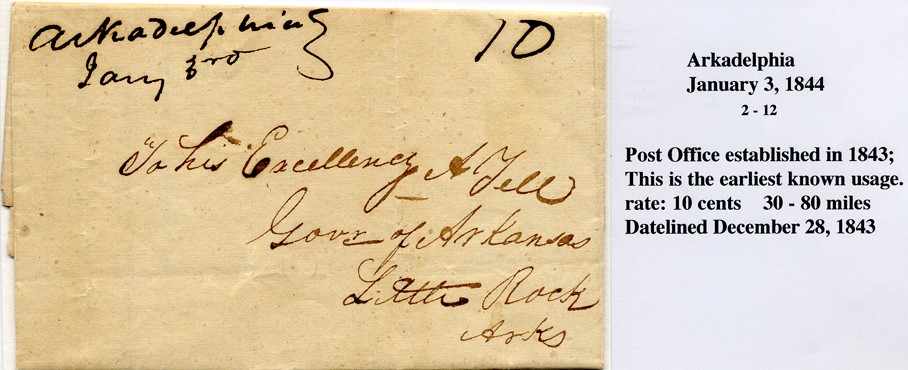 Arkadelphia
Jany 3rd
10
To his Excellency A Yell
Govr of Arkansas
Little Rock
Arks
Arkadelphia
January 3, 1844
2 - 12
Post Office established in 1843;
This is the earliest known usage.
rate: 10 cents 30 - 80 miles
Datelined December 28, 1843